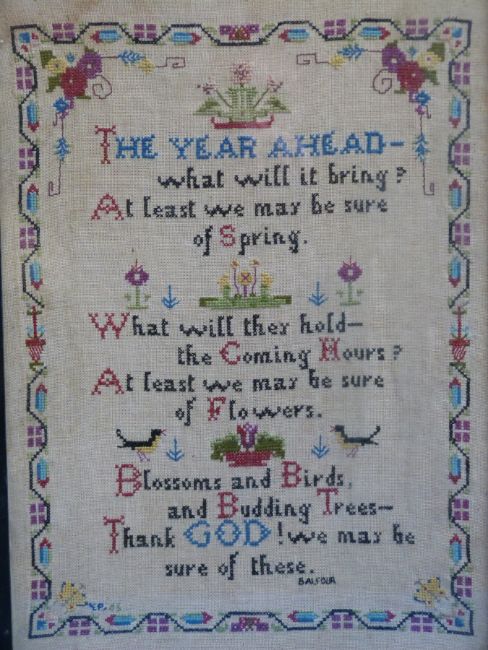 THE YEAR AHEAD—
what will it bring?
At least we may be sure
of Spring.
What will they hold—
the Coming Hours?
At least we may be sure
of Flowers.
Blossoms and Birds,
and Budding Trees—
Thank GOD! we may be
sure of these.
BALFOUR